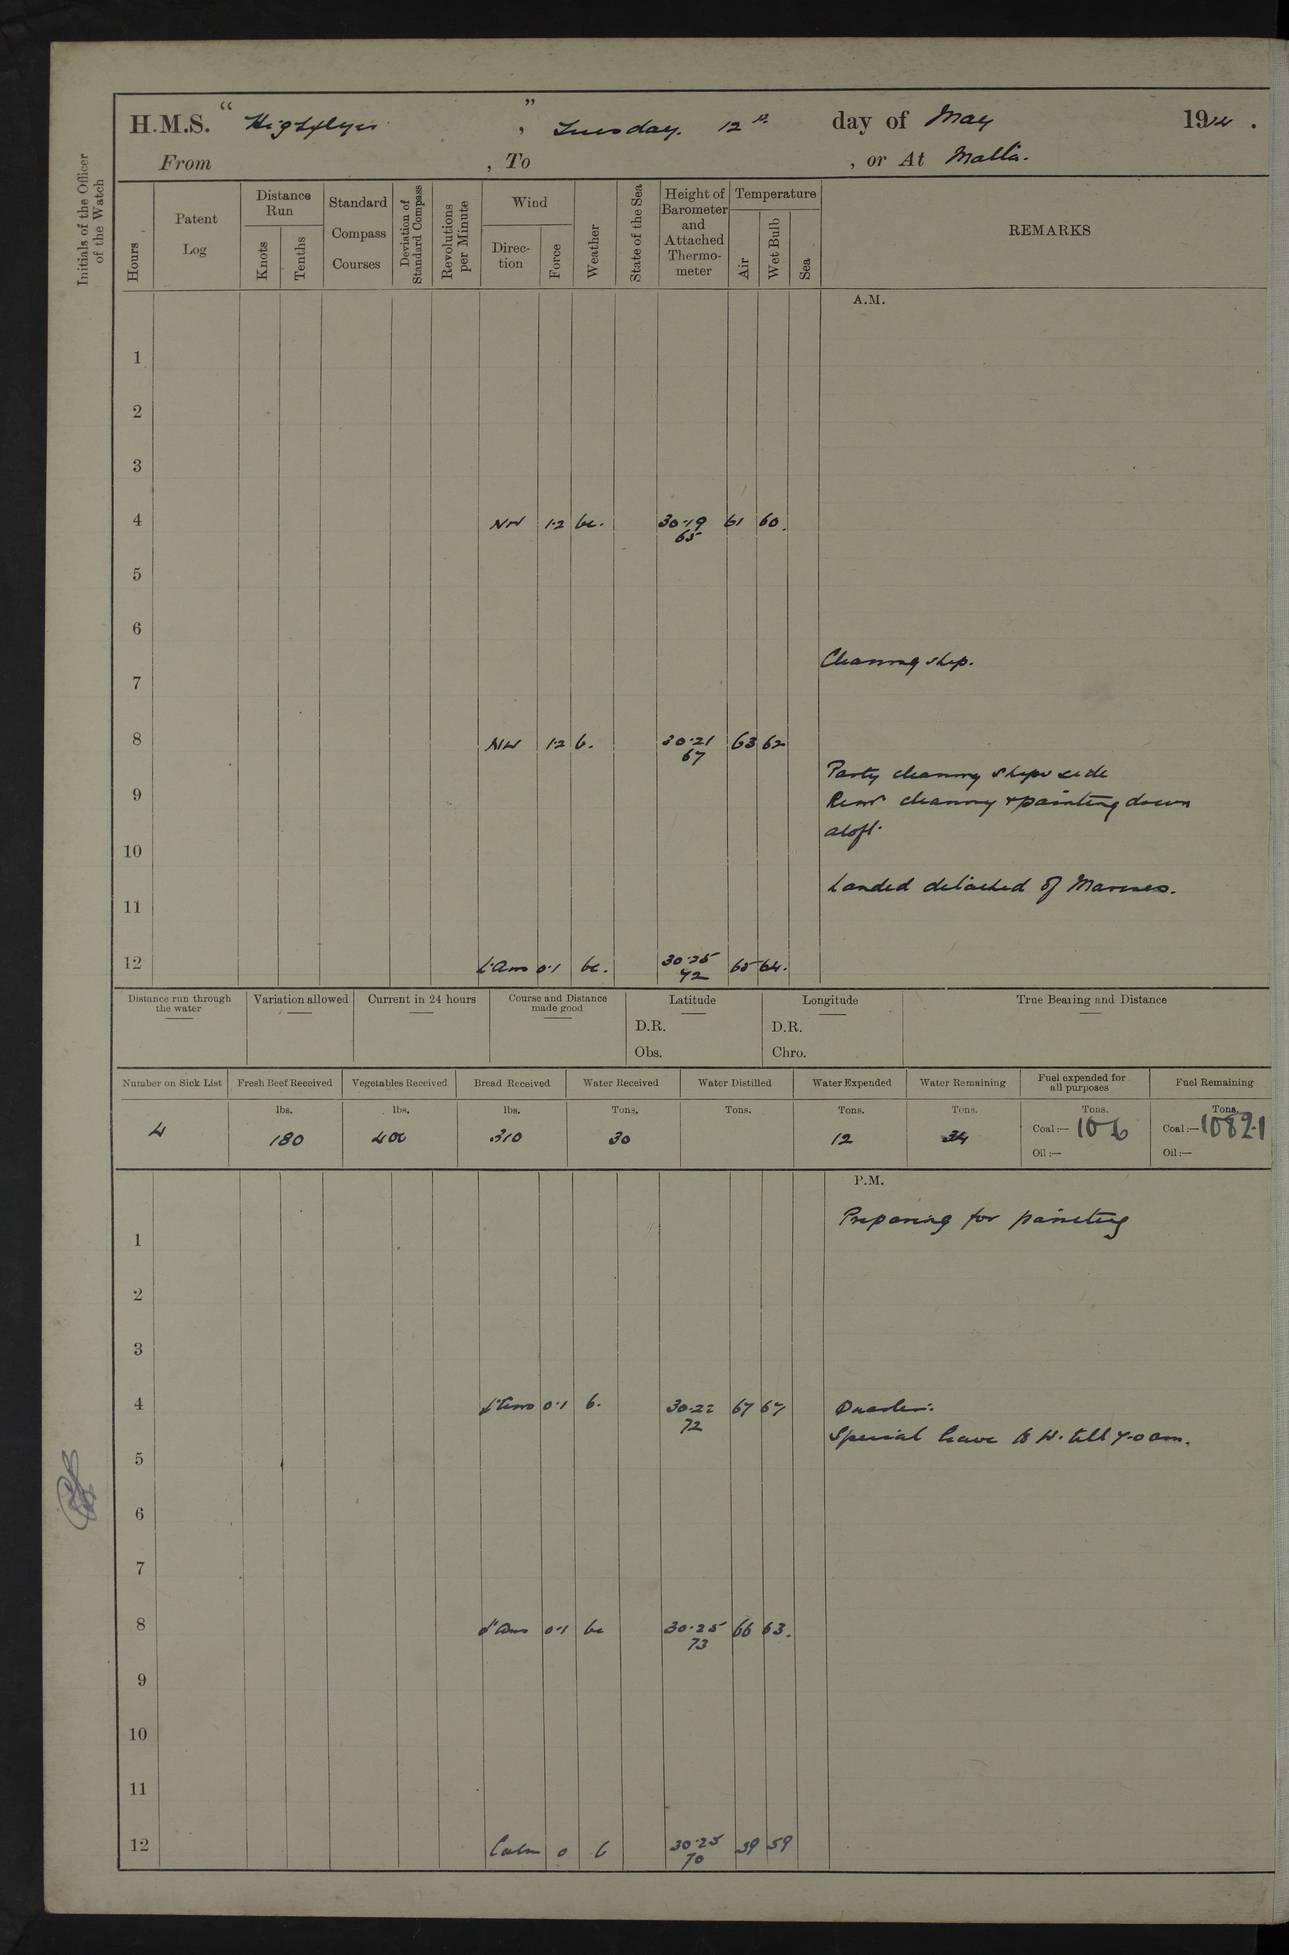 H.M.S. "Highflyer", Tuesday. 12th day of May 1914.
From , To , or At Malta.
Initials of the Officer of the Watch
Hours
Patent Log
Distance Run
Knots
Tenths
Standard Compass Courses
Deviation of Standard Compass
Revolutions per Minute
Wind
Direc-tion
Force
Weather
State of the Sea
Height of Barometer and Attached Thermo-meter
Temperature
Air
Wet Bulb
Sea
REMARKS
A.M.
1
2
3
4 NW 1·2 bc. 30·19 61 60.
65
5
6
Cleaning ship.
7
8 NW 1·2 b. 30·21 63 62
67
Party cleaning ships side
9 Remr cleaning & painting down
aloft.
10
Landed detached of Marines.
11
12 Lt Airs 0·1 bc. 30·25 65 64.
72
Distance run through the water
Variation allowed
Current in 24 hours
Course and Distance made good
Latitude
D.R.
Obs.
Longitude
D.R.
Chro.
True Bearing and Distance
Number on Sick List
Fresh Beef Received
Vegetables Received
Bread Received
Water Received
Water Distilled
Water Expended
Water Remaining
Fuel expended for all purposes
Fuel Remaining
lbs. lbs. lbs. Tons. Tons. Tons. Tons. Tons. Tons.
4 180 400 310 30 12 34 Coal:— 10·6 Coal:— 1089·1
Oil:— Oil:—
P.M.
Preparing for painting
1
2
3
4 Lt Airs 0·1 b. 30·22 67 67 Quarters.
72
Special leave to W. till 7·0 am.
5
6
7
8 Lt Airs 0·1 bc 30·25 66 63.
73
9
10
11
12 Calm 0 b 30·25 59 59
70